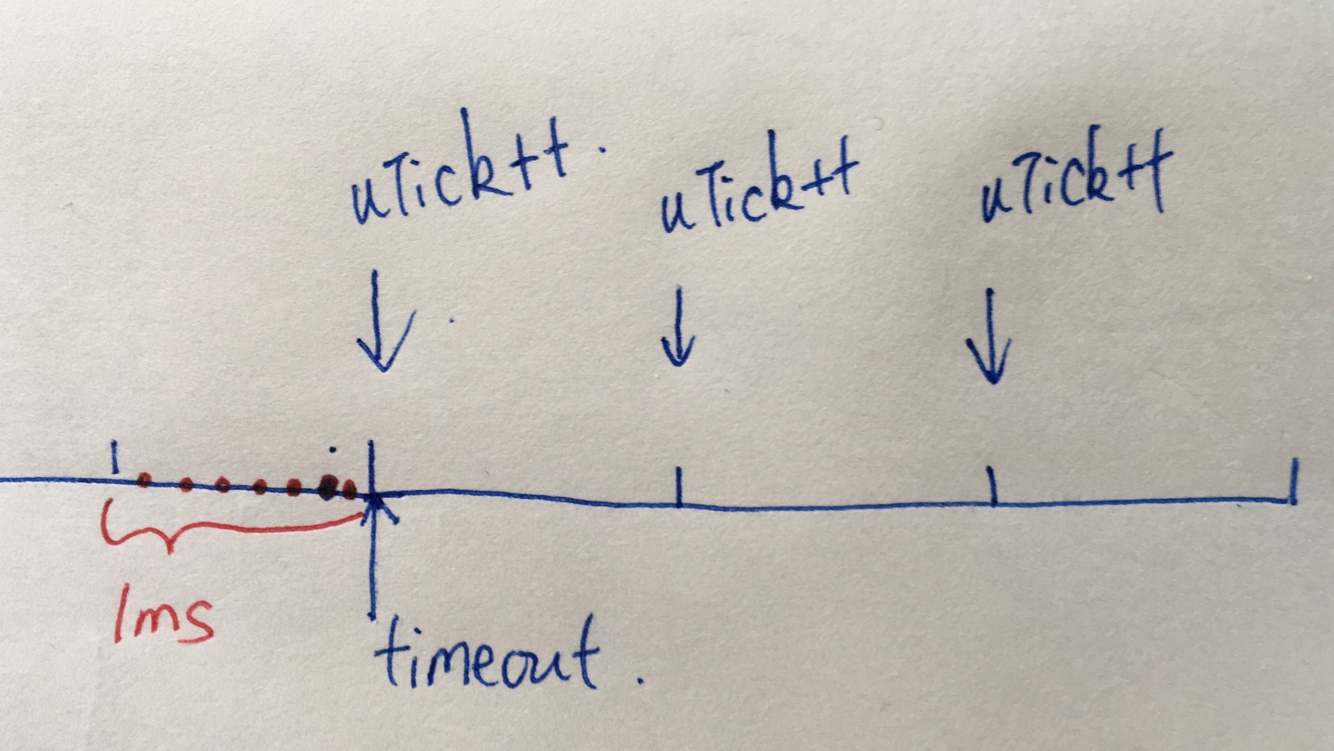 uTick++.
uTick++
uTick++
1ms
timeout.